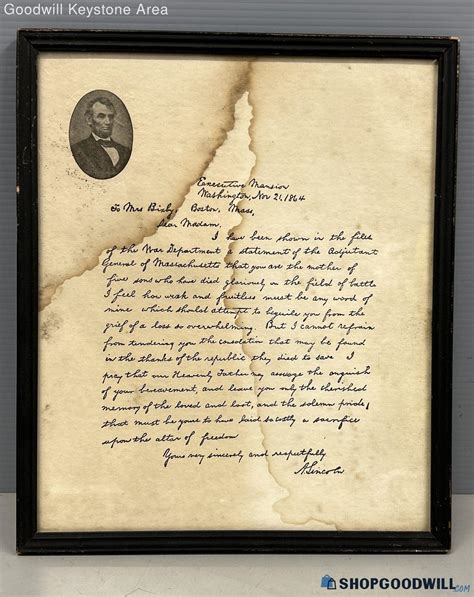 Goodwill Keystone Area
Executive Mansion
Washington, Nov 21, 1864
To Mrs Bixby, Boston, Mass,
Dear Madam,
I have been shown in the files
of the War Department a statement of the Adjutant
General of Massachusetts that you are the mother of
five sons who have died gloriously on the field of battle
I feel how weak and fruitless must be any word of
mine which should attempt to beguile you from the
grief of a loss so overwhelming. But I cannot refrain
from tendering you the consolation that may be found
in the thanks of the republic they died to save I
pray that our Heavenly Father may assuage the anguish
of your bereavement, and leave you only the cherished
memory of the loved and lost, and the solemn pride,
that must be yours to have laid so costly a sacrifice
upon the altar of freedom
Yours very sincerely and respectfully
A. Lincoln
SHOPGOODWILL.COM